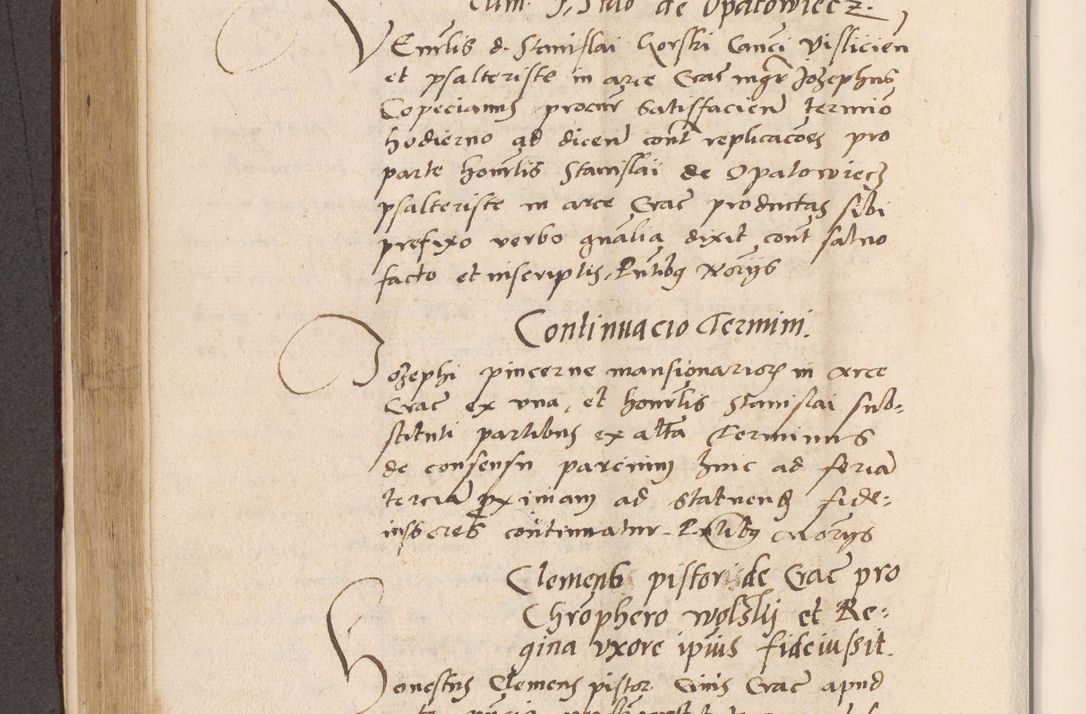 Cum de Opatowiecz.
Venrlis d. Stanislai Gorski Canci Vislicien
et psalteriste in arce Crac mgr Jozephus
Copecianus procur satisfacien termio
hodierno ad dicen cont replicacoes pro
parte honrlis Stanislai de Opatowiecz
psalteriste in arce Crac productas sibi
prefixo verbo gnalia dixit cont salvo
facto et inscriptis. Pntibq Noriis
Continuacio Termini.
Jozephi pincerne mansionarior in Arce
Crac ex una, et honrlis Stanislai sub-
stituti partibus ex altra Terminus
de consensu parcium hinc ad feria
tercia pximam ad statuend fide-
iussores continuatur. Pntibq Noriis
Clemens pistor de Crac pro
Chrophero Wolski et Re-
gina uxore ipius fideiussit.
Honestus Clemens pistor Civis Crac apud